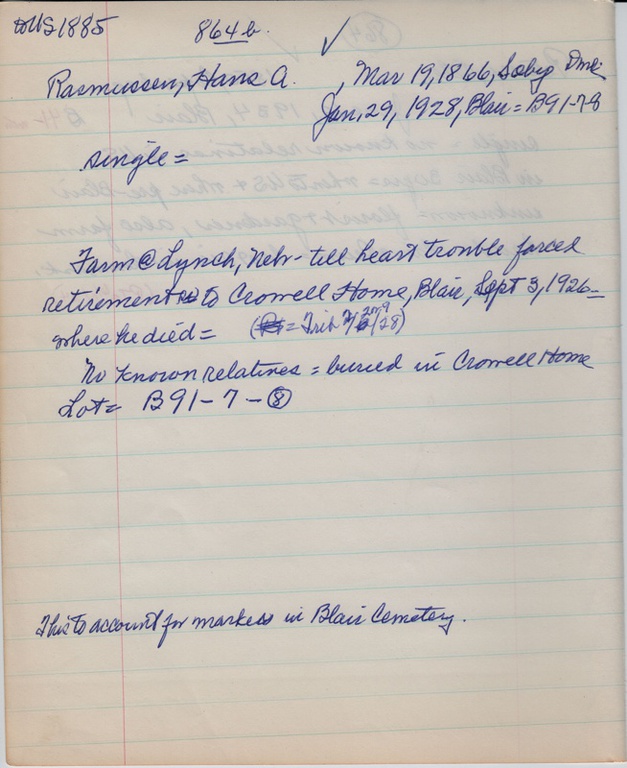 toUS 1885
864b.
✓
Rasmussen, Hans A. , Mar 19, 1866, Soby Dmk.
Jan, 29, 1928, Blair = B91-7-8
single =
Farm @ Lynch, Nebr - till heart trouble forced
retirement to Crowell Home, Blair, Sept 3, 1926 -
where he died = ( = Trib 2/ /28)
No known relatives = buried in Crowell Home
Lot = B91-7-⑧
This to account for markers in Blair Cemetery.